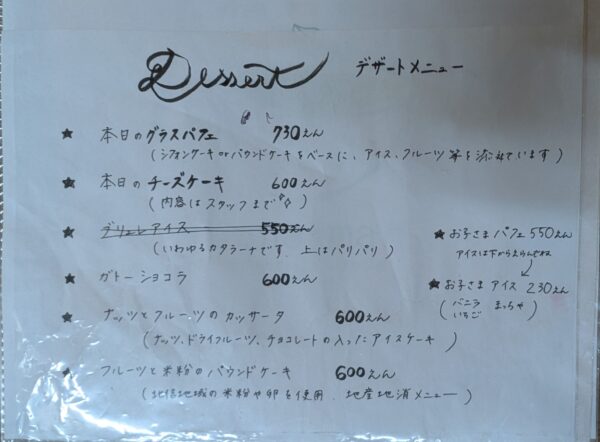 Dessert デザートメニュー
★ 本日のグラスパフェ 730えん
(シフォンケーキorパウンドケーキをベースに、アイス、フルーツ等を添えています)
★ 本日のチーズケーキ 600えん
(内容はスタッフまで)
★ ブリュレアイス 550えん
(いわゆるカタラーナです 上はパリパリ)
★ ガトーショコラ 600えん
★ ナッツとフルーツのカッサータ 600えん
(ナッツ、ドライフルーツ、チョコレートの入ったアイスケーキ)
★ フルーツと米粉のパウンドケーキ 600えん
(地域の米粉や卵を使用 地産地消メニュー)
★ お子さまパフェ 550えん
アイスは下からえらんでね
★ お子さまアイス 230えん
(バニラ まっちゃ
いちご)